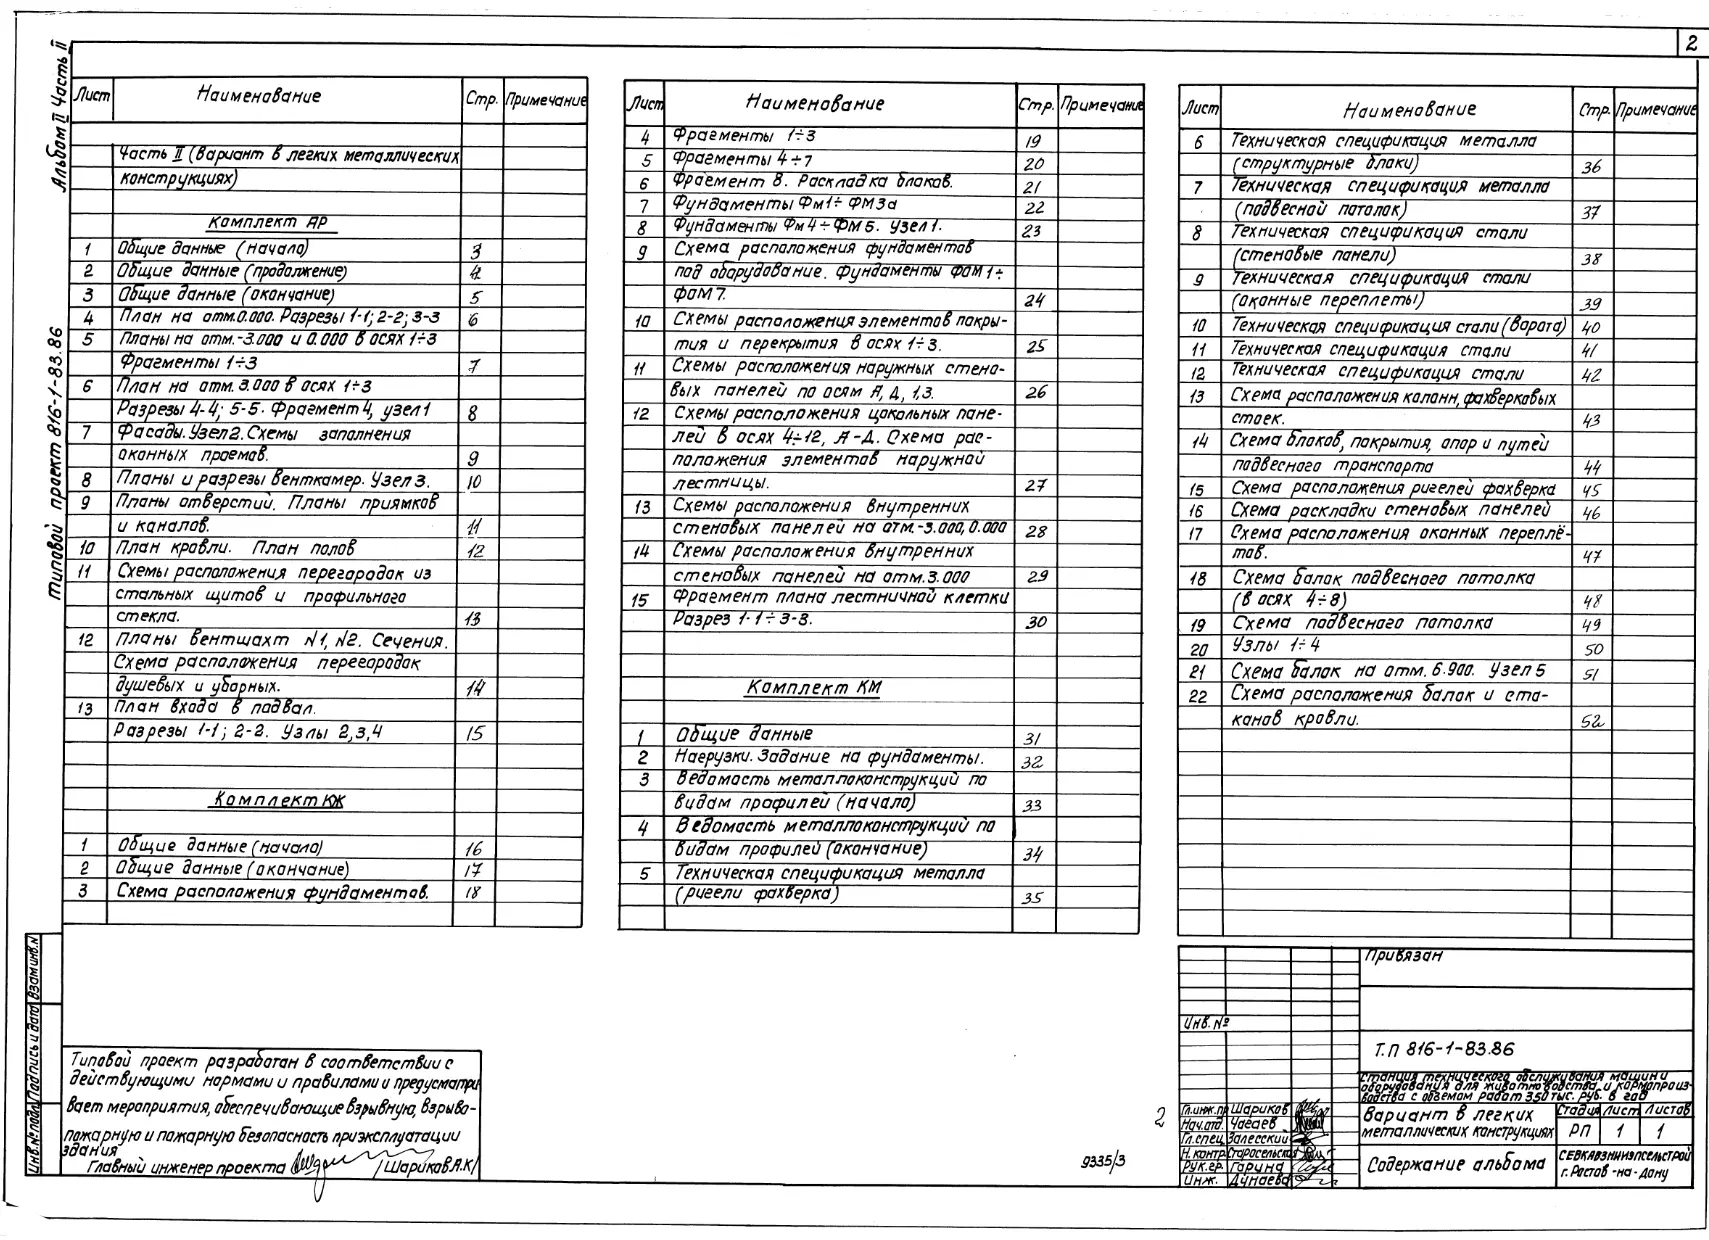 2
Альбом II Часть II
Типовой проект 816-1-83.86
Лист Наименование Стр. Примечание
Часть II (Вариант в легких металлических
конструкциях)
Комплект АР
1 Общие данные (начало) 3
2 Общие данные (продолжение) 4
3 Общие данные (окончание) 5
4 План на отм.0.000. Разрезы 1-1; 2-2; 3-3 6
5 Планы на отм.-3.000 и 0.000 в осях 1÷3
Фрагменты 1÷3 7
6 План на отм. 3.000 в осях 1÷3
Разрезы 4-4; 5-5. Фрагмент 4, узел 1 8
7 Фасады. Узел 2. Схемы заполнения
оконных проемов. 9
8 Планы и разрезы венткамер. Узел 3. 10
9 Планы отверстий. Планы приямков
и каналов. 11
10 План кровли. План полов 12
11 Схемы расположения перегородок из
стальных щитов и профильного
стекла. 13
12 Планы вентшахт №1, №2. Сечения.
Схема расположения перегородок
душевых и уборных. 14
13 План входа в подвал.
Разрезы 1-1; 2-2. Узлы 2,3,4 15
Комплект КЖ
1 Общие данные (начало) 16
2 Общие данные (окончание) 17
3 Схема расположения фундаментов. 18
Лист Наименование Стр. Примечание
4 Фрагменты 1÷3 19
5 Фрагменты 4÷7 20
6 Фрагмент 8. Раскладка блоков. 21
7 Фундаменты Фм1÷ФМ3а 22
8 Фундаменты Фм4÷ФМ5. Узел 1. 23
9 Схема расположения фундаментов
под оборудование. Фундаменты ФОМ1÷
ФОМ7. 24
10 Схемы расположения элементов покры-
тия и перекрытия в осях 1÷3. 25
11 Схемы расположения наружных стено-
вых панелей по осям А, Д, 1,3. 26
12 Схемы расположения цокольных пане-
лей в осях 4÷12, А-Д. Схема рас-
положения элементов наружной
лестницы. 27
13 Схемы расположения внутренних
стеновых панелей на отм.-3.000, 0.000 28
14 Схемы расположения внутренних
стеновых панелей на отм.3.000 29
15 Фрагмент плана лестничной клетки
Разрез 1-1÷3-3. 30
Комплект КМ
1 Общие данные 31
2 Нагрузки. Задание на фундаменты. 32
3 Ведомость металлоконструкций по
видам профилей (начало) 33
4 Ведомость металлоконструкций по
видам профилей (окончание) 34
5 Техническая спецификация металла
(ригели фахверка) 35
Лист Наименование Стр. Примечание
6 Техническая спецификация металла
(структурные блоки) 36
7 Техническая спецификация металла
(подвесной потолок) 37
8 Техническая спецификация стали
(стеновые панели) 38
9 Техническая спецификация стали
(оконные переплеты) 39
10 Техническая спецификация стали (ворота) 40
11 Техническая спецификация стали 41
12 Техническая спецификация стали 42
13 Схема расположения колонн, фахверковых
стоек. 43
14 Схема блоков, покрытия, опор и путей
подвесного транспорта 44
15 Схема расположения ригелей фахверка 45
16 Схема раскладки стеновых панелей 46
17 Схема расположения оконных переплё-
тов. 47
18 Схема балок подвесного потолка
(в осях 4÷8) 48
19 Схема подвесного потолка 49
20 Узлы 1÷4 50
21 Схема балок на отм. 6.900. Узел 5 51
22 Схема расположения балок и ста-
канов кровли. 52
Инв.№подл. Подпись и дата Взам.инв.№
Типовой проект разработан в соответствии с
действующими нормами и правилами и предусматри
вает мероприятия, обеспечивающие взрывную, взрыво-
пожарную и пожарную безопасность при эксплуатации
здания
Главный инженер проекта /Шариков А.К/
2
9335/3
Привязан
Инв. №
Т.П 816-1-83.86
Станция технического обслуживания машин и
оборудования для животноводства и кормопроиз-
водства с объемом работ 350 тыс. руб. в год
Гл.инж.пр Шариков
Нач.отд. Чагаев
Гл.спец. Залесский
Н.контр. Старосельская
Рук.гр. Гарина
Инж. Дунаева
Вариант в легких
металлических конструкциях
Стадия Лист Листов
РП 1 1
Содержание альбома
СЕВКАВЗНИИЭПСЕЛЬСТРОЙ
г. Ростов-на-Дону